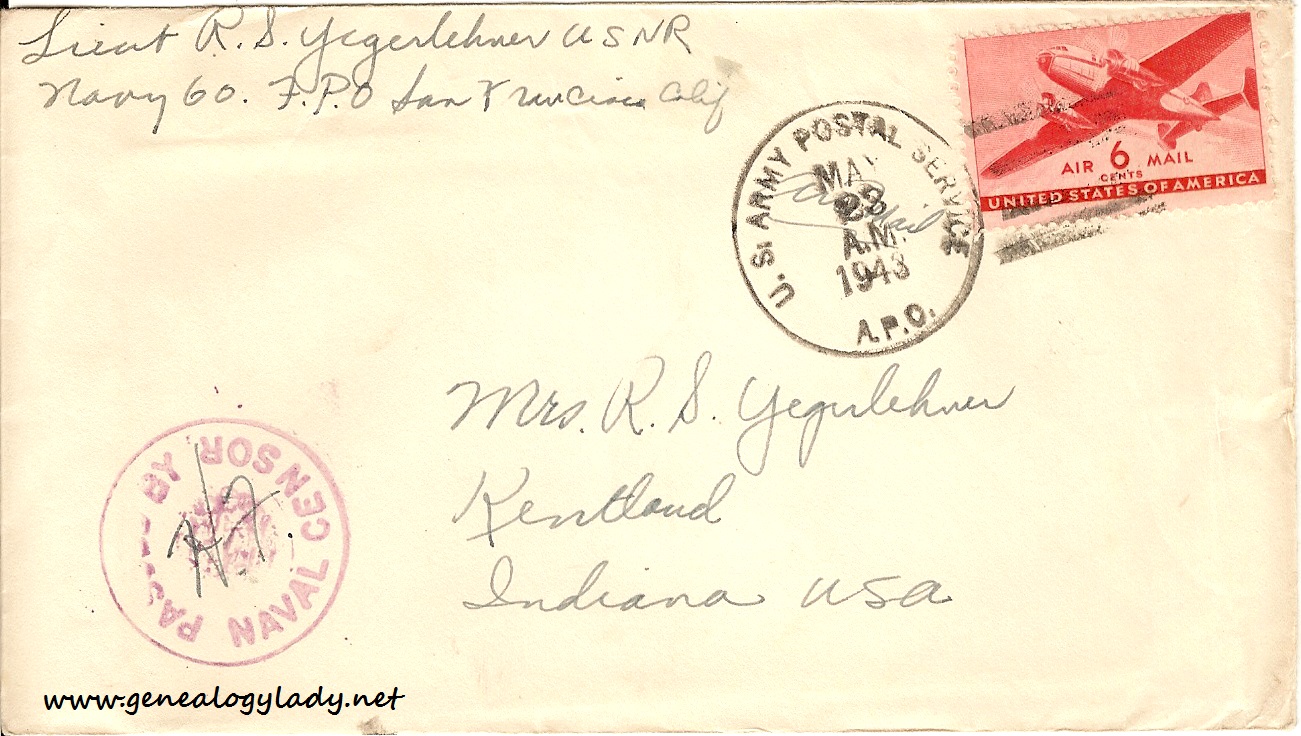 Lieut R. S. Yegerlehner USNR
Navy 60. F.P.O San Francisco Calif
U.S. ARMY POSTAL SERVICE
MAY
23
A.M.
1943
A.P.O.
Air Mail
AIR 6 MAIL
CENTS
UNITED STATES OF AMERICA
Mrs. R. S. Yegerlehner
Kentland
Indiana USA
PASSED BY NAVAL CENSOR
www.genealogylady.net